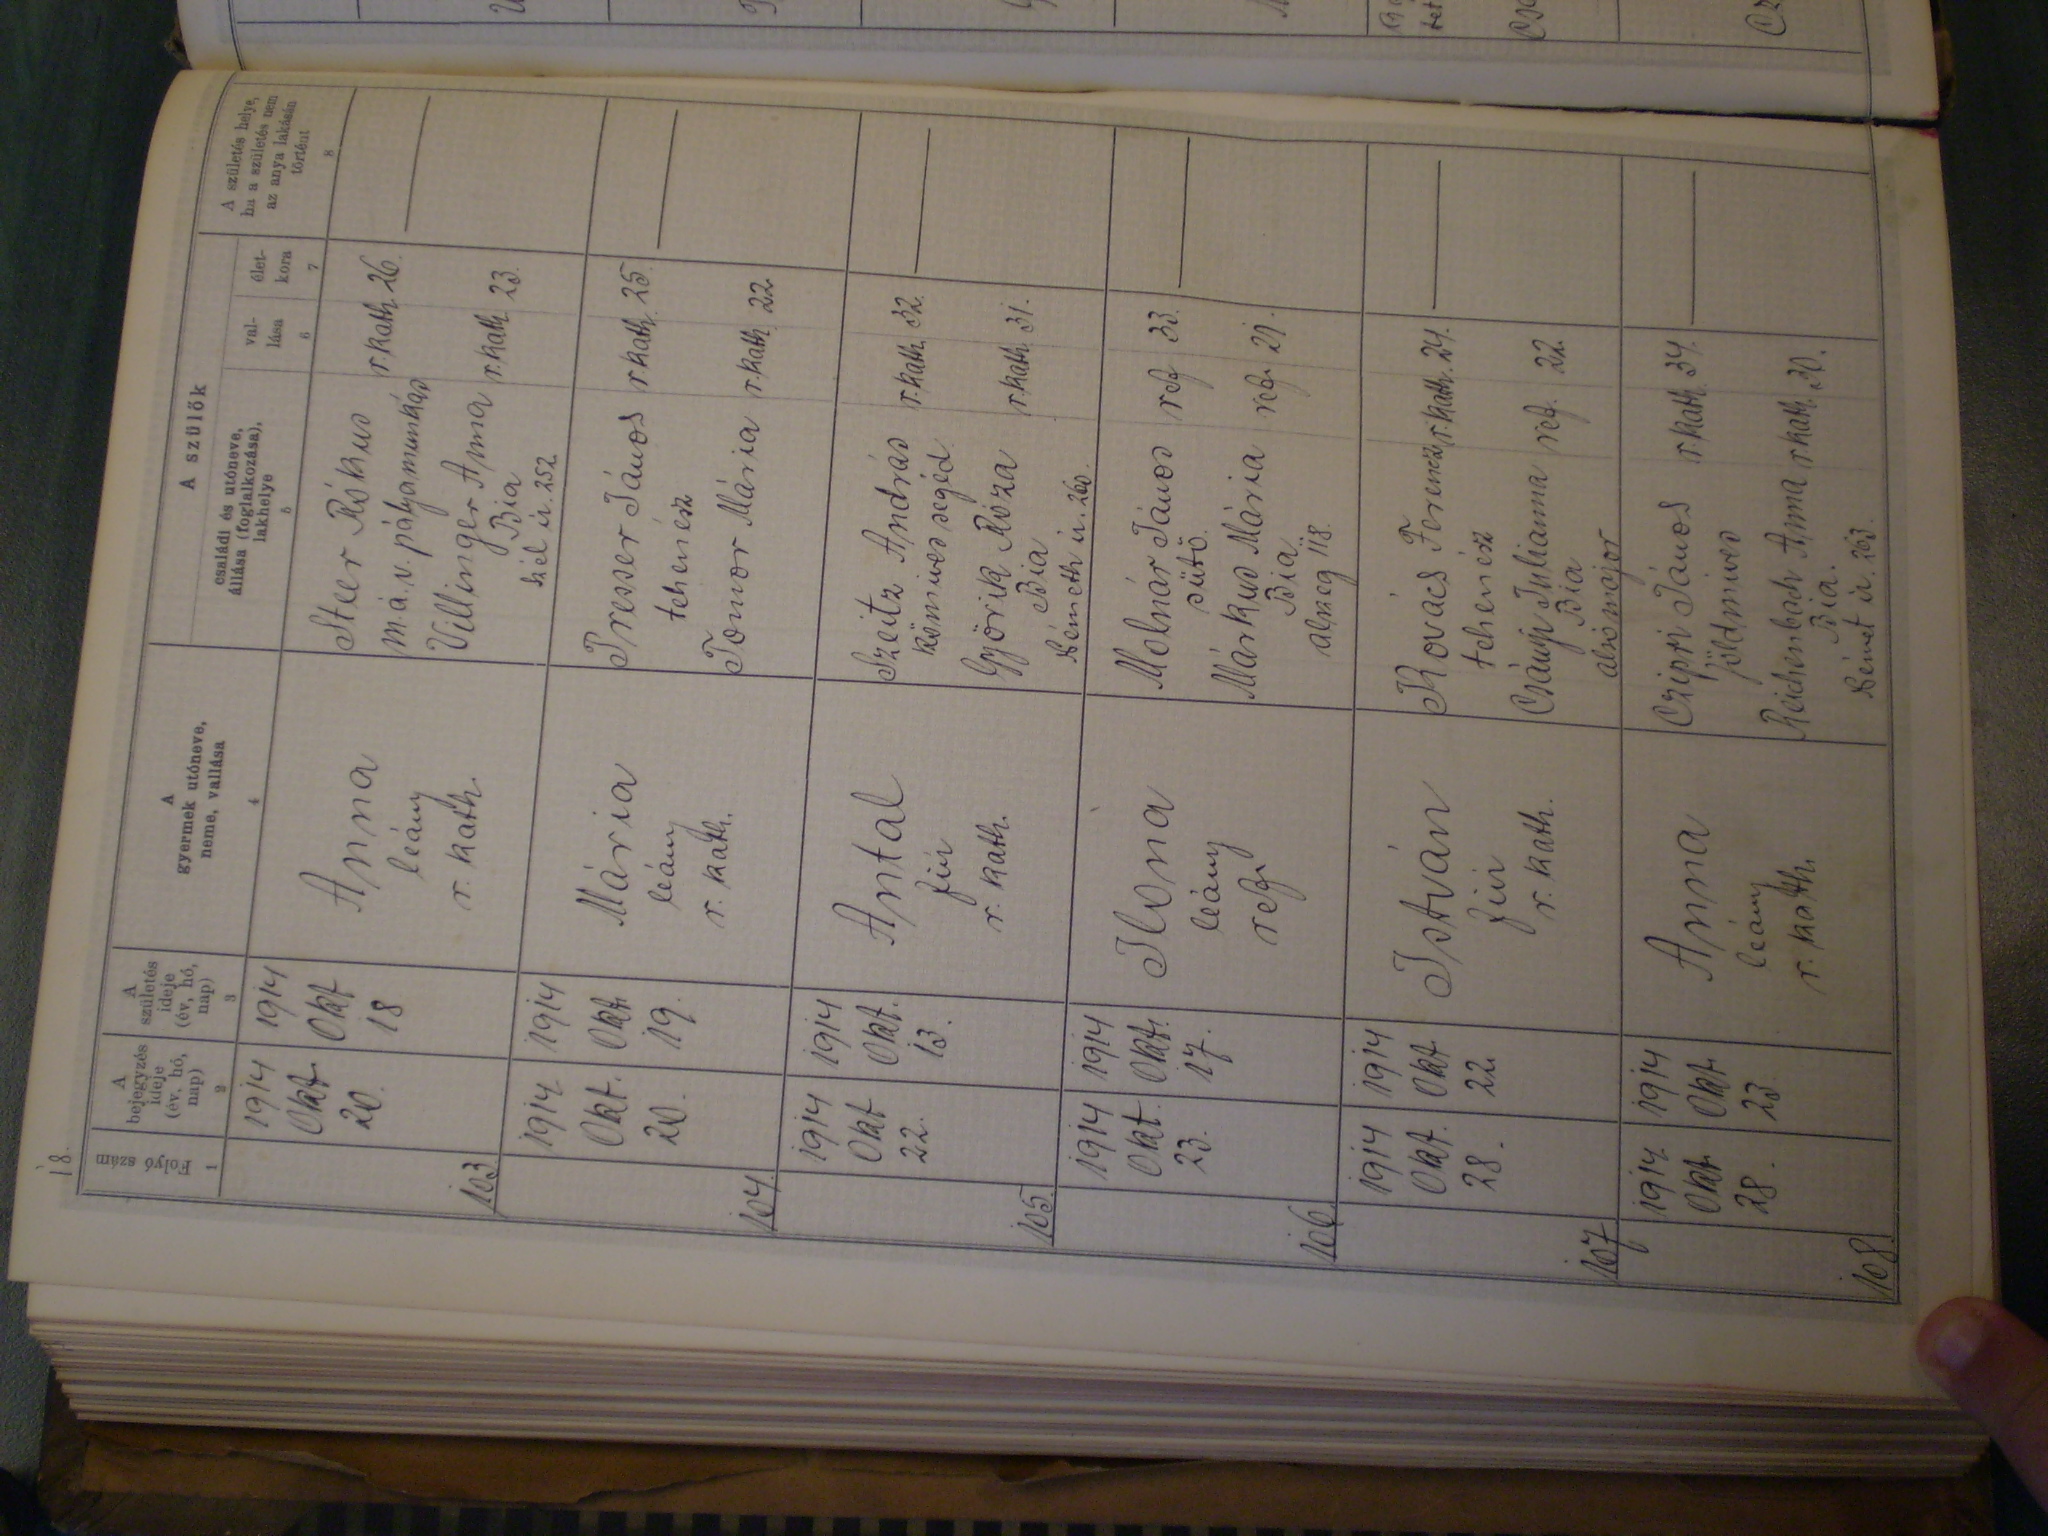 18.
Folyó szám
A bejegyzés ideje (év, hó, nap)
A születés ideje (év, hó, nap)
A gyermek utóneve, neme, vallása
A szülők
családi és utóneve, állása (foglalkozása), lakhelye
val-
lása
élet-
kora
A születés helye,
ha a születés nem
az anya lakásán
történt
1
2
3
4
5
6
7
8
103
1914
Okt.
20.
1914
Okt
18
Anna
leány
r. kath.
Steer Rókus
m. á. v. pályamunkás
r. kath. 26.
Villinger Anna
r. kath. 23.
Bia
szél u. 252
104.
1914
Okt.
20.
1914
Okt.
19.
Mária
leány
r. kath.
Presser János
r. kath. 25.
tehenész
Tomor Mária
r. kath. 22.
105.
1914
Okt
22.
1914
Okt.
13.
Antal
fiú
r. kath.
Szeitz András
r. kath. 32.
kőmives segéd
Györik Róza
r. kath. 31.
Bia
Németh u. 260.
106.
1914
Okt.
23.
1914
Okt.
17.
Ilona
leány
ref.
Molnár János
ref. 33.
sütő
Márkus Mária
ref.
Bia
alszeg 118.
107
1914
Okt.
28.
1914
Okt
22
István
fiú
r. kath.
Kovács Ferencz
r. kath. 24.
tehenész
Csányi Julianna
ref. 22.
Bia
alsómajor
108.
1914.
Okt.
28.
1914
Okt.
23
Anna
leány
r. kath.
Czipri János
r. kath. 34.
földmives
Reichenbach Anna
r. kath. 30.
Bia.
Német u. 263.